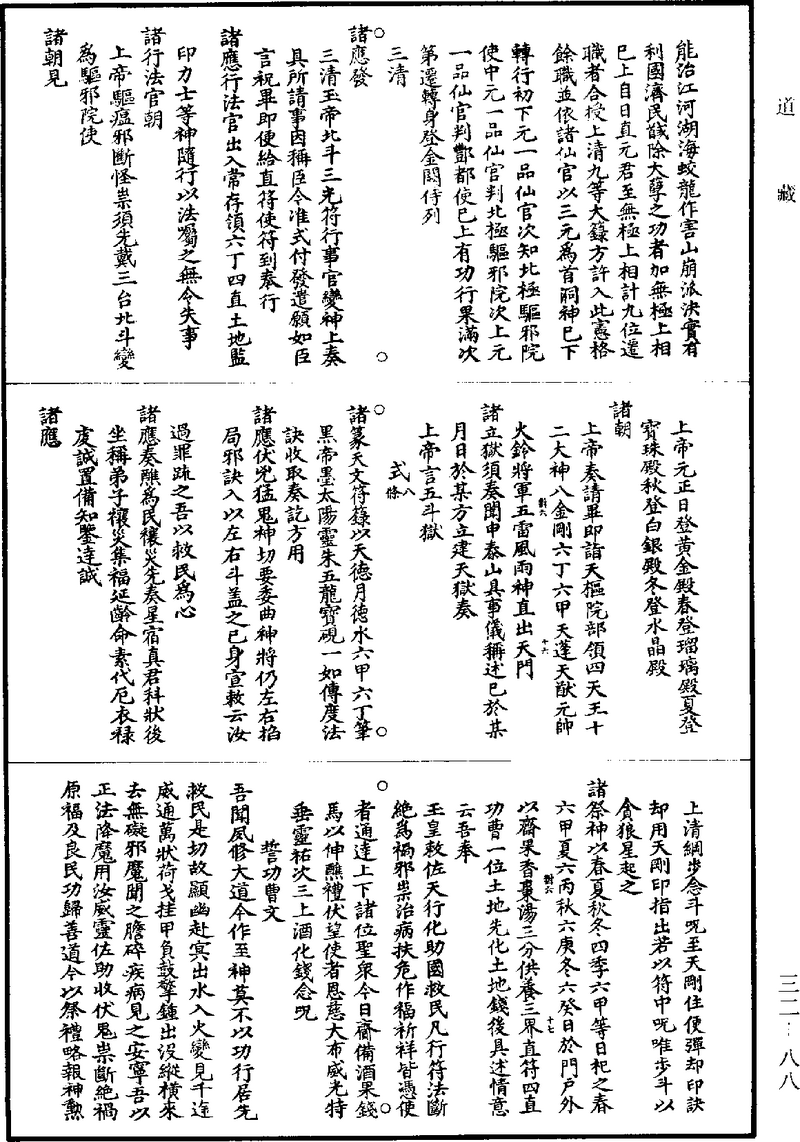 道藏
能治江河湖海蛟龍作害山崩派決實有
利國濟民誠除大孽之功者加無極上相
已上自日直元君至無極上相計九位遷
職者合授上清九等大籙方許入此憲格
餘職並依諸仙官以三元爲首嗣神已下
轉行初下元一品仙官次知北極驅邪院
使中元一品仙官判北極驅邪院次上元
一品仙官判酆都使已上有功行果滿次
第遷轉身登金闕侍列
三清
諸應發
三清玉帝北斗三光符行事官變神上奏
具所請事因稱臣今准式付發遣願如臣
言祝畢即便給直符使符到奉行
諸應行法官出入常存領六丁四直土地監
印力士等神隨行以法囑之無令失事
諸行法官朝
上帝驅瘟邪斷怪祟須先戴三台北斗變
爲驅邪院使
諸朝見
上帝元正日登黃金殿春登瑠璃殿夏登
寶珠殿秋登白銀殿冬登水晶殿
諸朝
上帝奏請畢即詣天樞院部領四天王十
二大神八金剛六丁六甲天蓬天猷元帥
火鈴將軍五雷風雨神直出天門
諸立獄須奏聞申泰山具事儀稱述已於某
月日於某方立建天獄奏
上帝言五斗獄
式八條
諸篆天文符籙以天德月德水六甲六丁筆
黑帝墨太陽靈朱五龍寶硯一如傳度法
訣收取奏訖方用
諸應伏兇猛鬼神切要委曲神將仍左右掐
局邪訣入以左右斗盖之已身宣敕云汝
過罪疏之吾以救民爲心
諸應奏醮爲民禳災先奏星宿真君科狀後
坐稱弟子禳災集福延齡命素代厄衣祿
虔誠置備知鑒達誠
諸應
上清綱步念斗呪至天剛住便彈却印訣
却用天剛印指出若以符中呪唯步斗以
貪狼星起之
諸祭神以春夏秋冬四季六甲等日祀之春
六甲夏六丙秋六庚冬六癸日於門戶外
以齋果香棗湯三分供養三界直符四直
功曹一位土地先化土地錢後具述情意
云吾奉
玉皇敕佐天行化助國救民凡行符法斷
絕爲禍邪祟治病扶危作福祈祥皆憑使
者通達上下諸位聖衆今日齋備酒果錢
馬以伸醮禮伏望使者恩慈大布威光特
垂靈祐次三上酒化錢念呪
誓功曹文
吾聞夙修大道今作至神莫不以功行居先
救民是切故顯幽赴冥出水入火變見千途
威通萬狀荷戈挂甲負鼓擎鍾出沒縱橫來
去無礙邪魔聞之膽碎疾病見之安寧吾以
正法降魔用汝威靈佐助收伏鬼祟斷絕禍
原福及良民功歸善道今以祭禮略報神勲
三二－八八